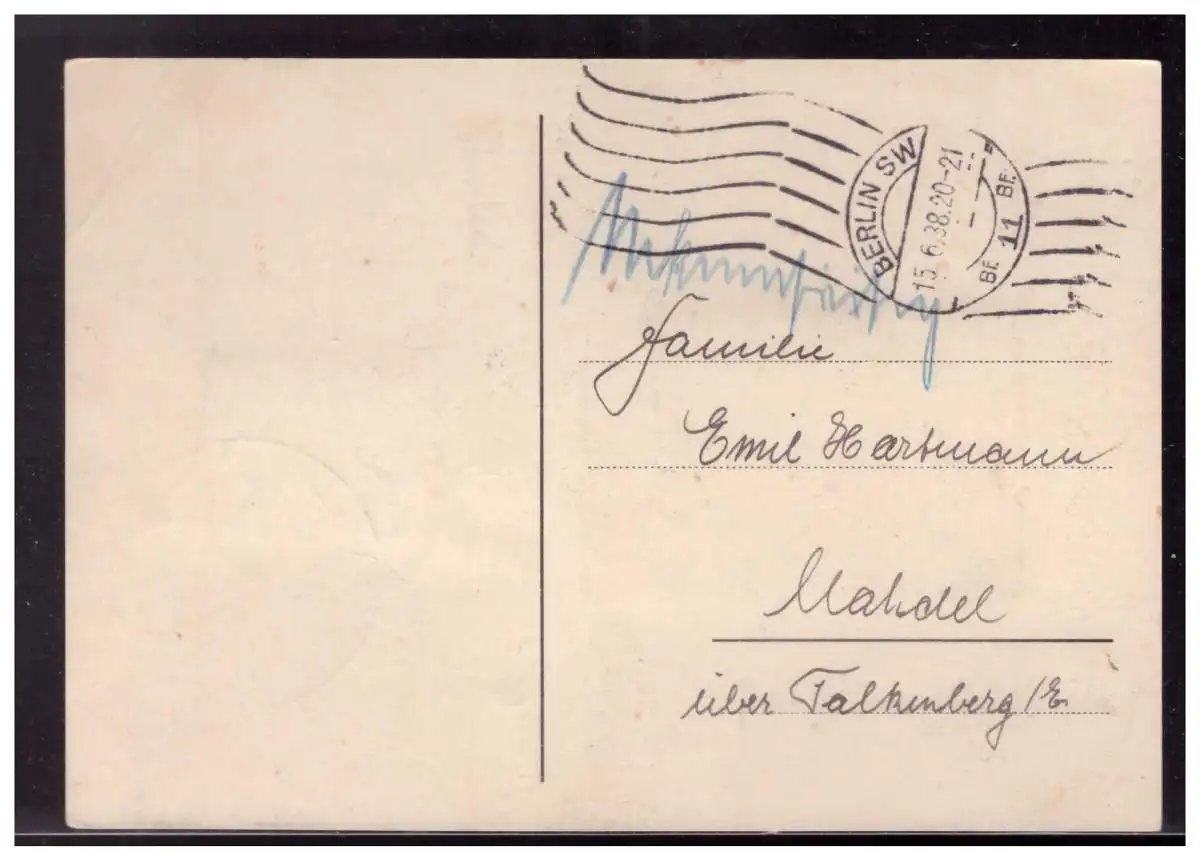 BERLIN SW 11
15.6.38.20-21
BE BE
Familie
Emil Hartmann
Mahdel
über Falkenberg/E